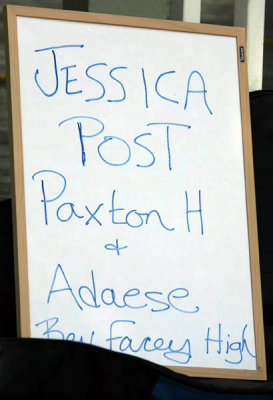 JESSICA
POST
Paxton H
&
Adaese
Facey High